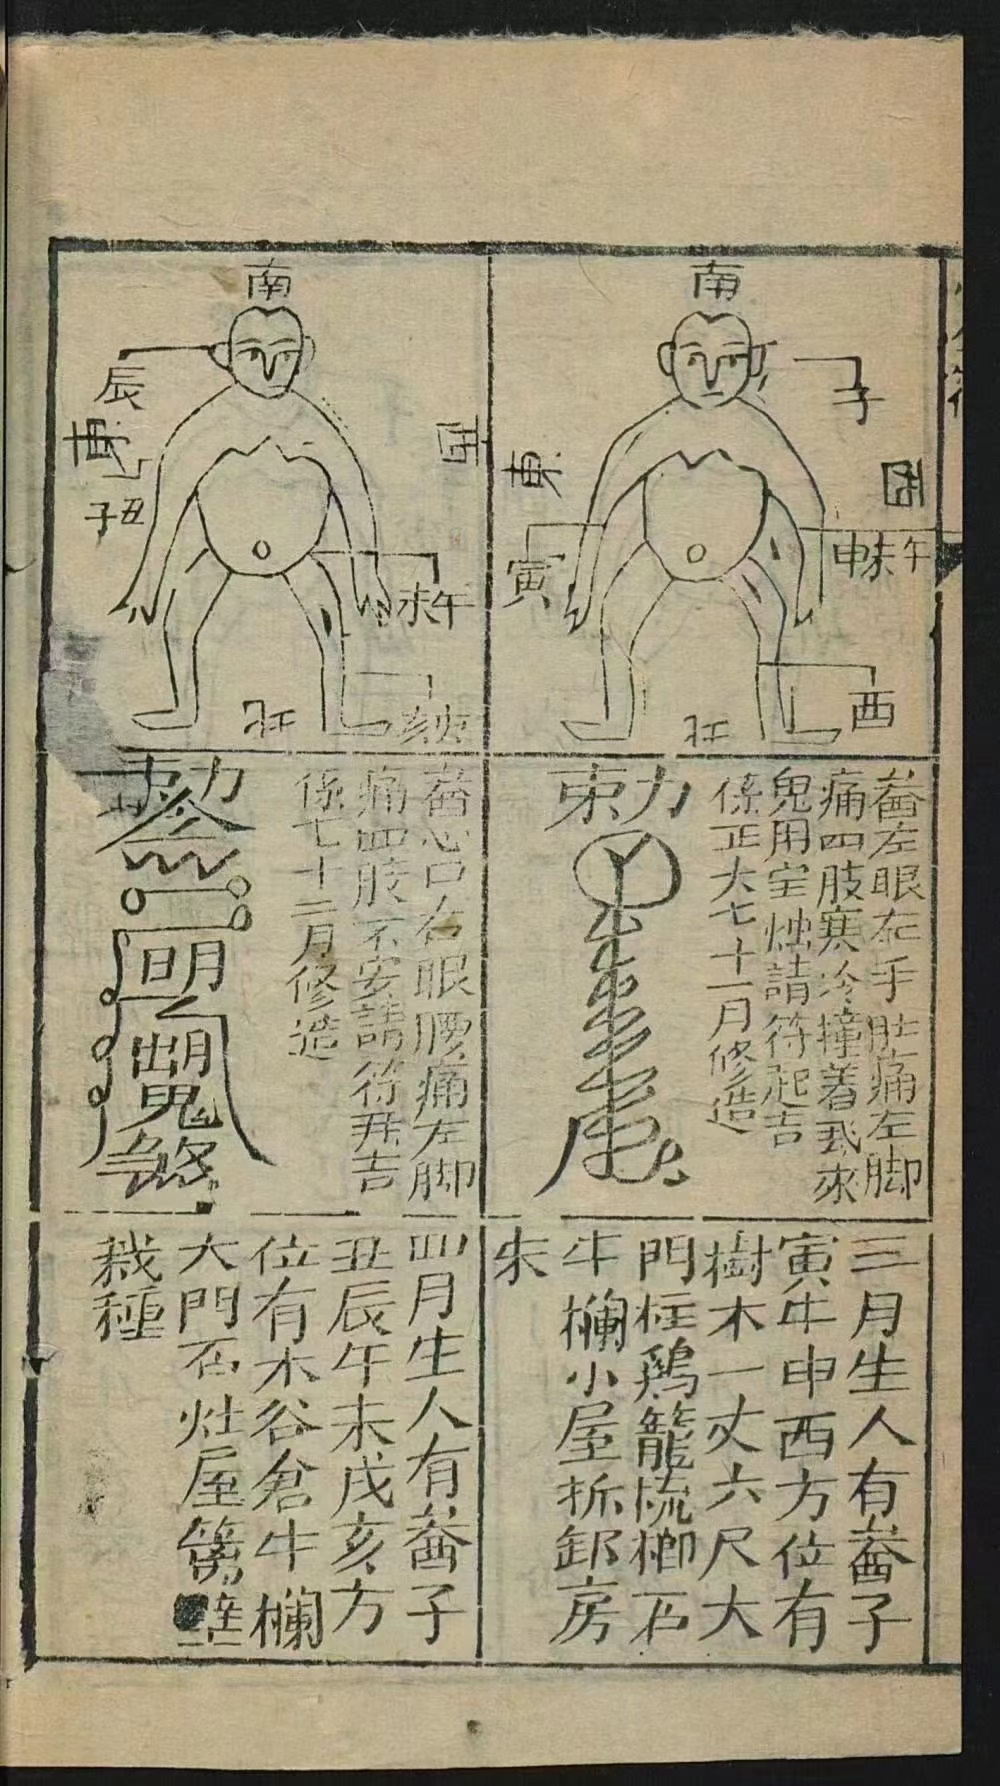 南
子
西
東
申未午
寅
酉
北
力
東
啚左眼左手肚痛左脚
痛四肢寒冷撞着我來
鬼用宝烛請符起吉
係正大七十一月修造
三月生人有啚子
寅牛申西方位有
樹木一丈六尺大
門柱鷄籠梳櫛石
牛欄小屋拆卸房
朱
南
辰
東
西
丑
子
未午
北
力
明
鬼
煞
啚心口右眼腰痛左脚
痛四肢不安請符用吉
係七十二月修造
四月生人有啚子
丑辰午未戌亥方
位有木谷倉牛欄
大門石灶屋篱
栽種